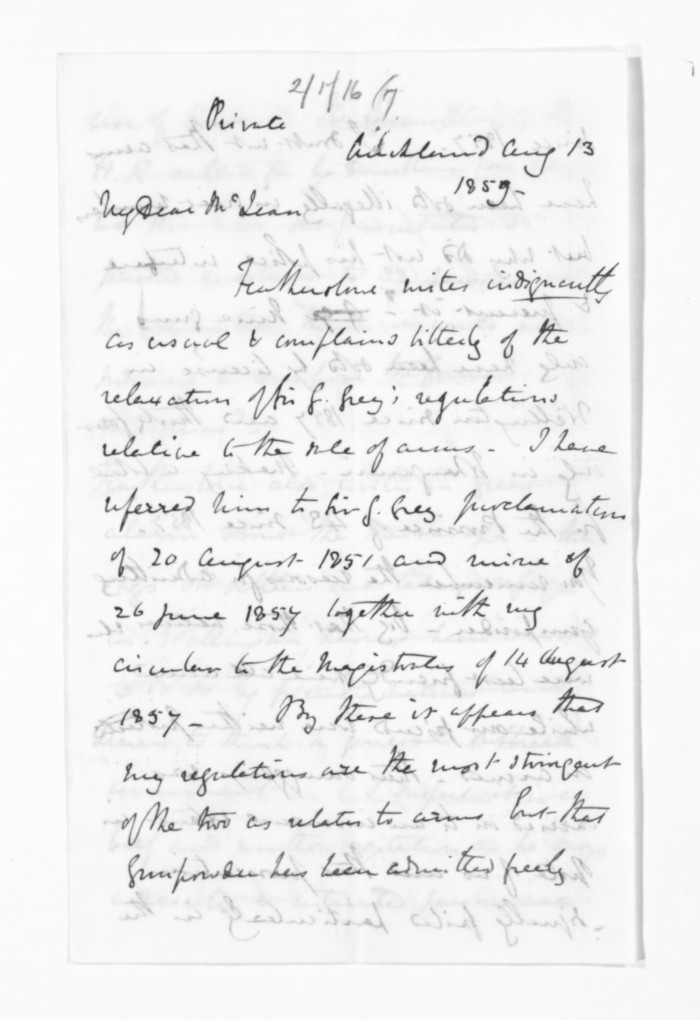 Private
Auckland Aug 13
1859.
My Dear McLean
Featherstone writes indignantly
as usual & complains bitterly of the
relaxation of Sir G. Grey's regulations
relative to the sale of arms - I have
referred him to Sir G. Grey proclamation
of 20 August 1851 and mine of
26 June 1857 together with my
circular to the Magistrates of 14 August
1857 - By these it appears that
my regulations are the most stringent
of the two as relates to arms but that
Gunpowder has been admitted freely